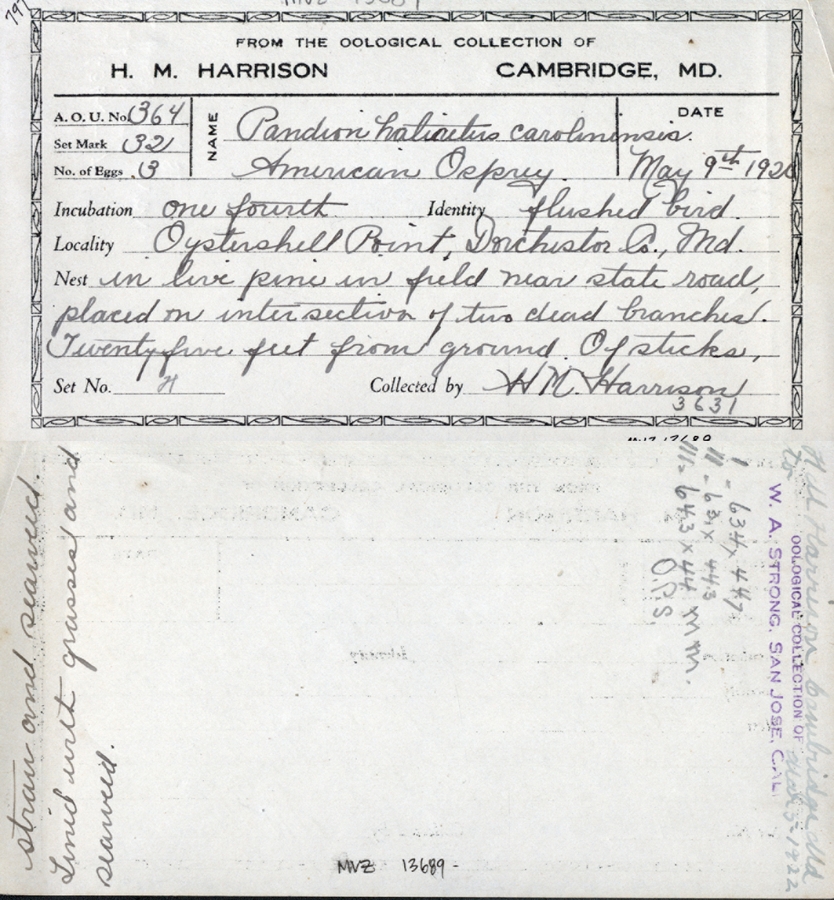 797
MVZ 13689
FROM THE OOLOGICAL COLLECTION OF
H. M. HARRISON CAMBRIDGE, MD.
A. O. U. No. 364
Set Mark 32
No. of Eggs 3
NAME
Pandion haliaetus carolinensis.
American Osprey.
DATE
May 9th 192
Incubation one fourth Identity flushed bird.
Locality Oystershell Point, Dorchestor Co., Md.
Nest in live pine in field near state road,
placed on intersection of two dead branches.
Twentyfive feet from ground. Of sticks,
Set No. Collected by H M. Harrison
3631
MVZ 13689
straw and seaweed.
Lined with grasses and
seaweed.
I = 634 x 447
II - 63 x 443
III = 643 x 44 mm.
O.P.S.
OOLOGICAL COLLECTION OF
W. A. STRONG, SAN JOSE, CAL.
H M Harrison Cambridge Md
MVZ 13689 -